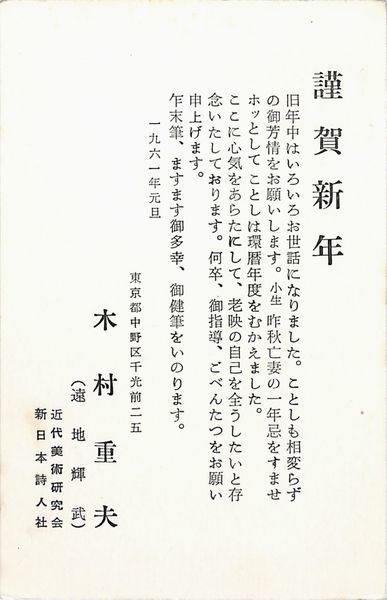 謹賀新年
旧年中はいろいろお世話になりました。ことしも相変らず
の御芳情をお願いします。小生 昨秋亡妻の一年忌をすませ
ホッとして ことしは環暦年度をむかえました。
ここに心気をあらたにして、老映の自己を全うしたいと存
念いたしております。何卒、御指導、ごべんたつをお願い
申上げます。
乍末筆、ますます御多幸、御健筆をいのります。
一九六一年元旦
東京都中野区千光前二五
木村重夫
(遠地輝武)
近代美術研究会
新日本詩人社